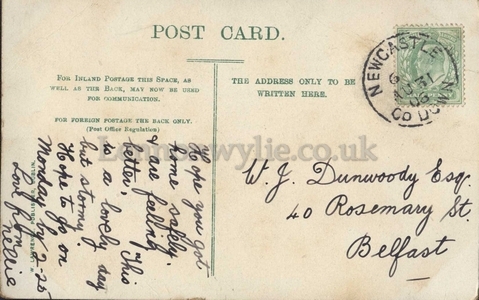 POST CARD.
FOR INLAND POSTAGE THIS SPACE, AS
WELL AS THE BACK, MAY NOW BE USED
FOR COMMUNICATION.
FOR FOREIGN POSTAGE THE BACK ONLY.
(Post Office Regulation)
THE ADDRESS ONLY TO BE
WRITTEN HERE.
NEWCASTLE
AU 31
06
CO DOWN
Hope you got
home safely.
& are feeling
better, This
is a lovely day
but stormy.
Hope to go on
Monday by 2-25
Love from
Nellie
W. J. Dunwoody Esq.
40 Rosemary St.
Belfast